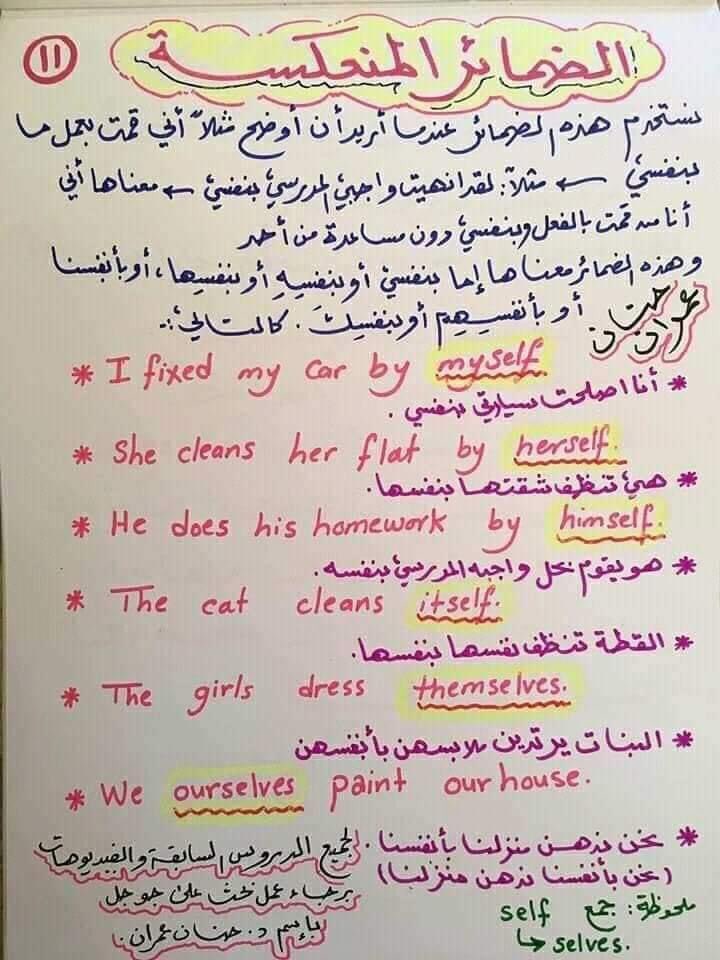 ١١
الضمائر المنعكسة
نستخدم هذه الضمائر عندما أريد أن أوضح مثلاً أني قمت بعمل ما
بنفسي ← مثلاً: لقد انهيت واجبي المدرسي بنفسي ← معناها أني
أنا من قمت بالفعل وبنفسي دون مساعدة من أحد
وهذه الضمائر معناها إما بنفسي أو بنفسِهِ أو بنفسِها، أو بأنفسنا
أو بأنفسِهِم أو بنفسِكَ. كالتالي:
حنان
عمران
* I fixed my car by myself
* أنا اصلحت سيارتي بنفسي.
* She cleans her flat by herself.
* هي تنظف شقتها بنفسها.
* He does his homework by himself.
* هو يقوم بحل واجبه المدرسي بنفسه.
* The cat cleans itself.
* القطة تنظف نفسها بنفسها.
* The girls dress themselves.
* البنات يرتدين ملابسهن بأنفسهن
* We ourselves paint our house.
* نحن ندهن منزلنا بأنفسنا.
(نحن بأنفسنا ندهن منزلنا)
ملحوظة: جمع self
↳ selves.
لجميع الدروس السابقة والفيديوهات
برجاء عمل بحث على جوجل
بإسم د. حنان عمران.